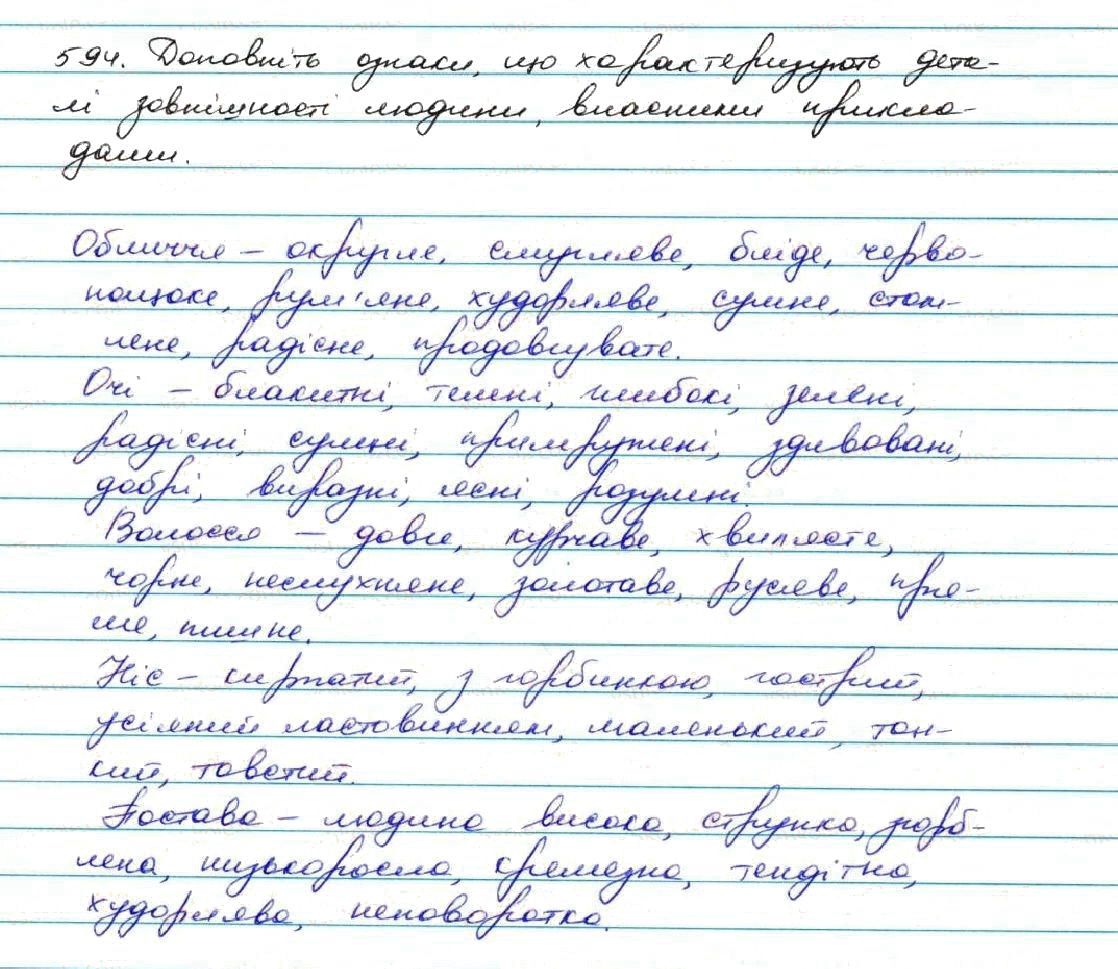 594. Доповніть ознаки, що характеризують дета-
лі зовнішності людини, власними прикла-
дами.
Обличчя – округле, смугляве, бліде, черво-
нощоке, рум'яне, худорляве, сумне, стом-
лене, радісне, продовгувате.
Очі – блакитні, темні, глибокі, зелені,
радісні, сумні, примружені, здивовані,
добрі, виразні, ясні, розумні.
Волосся – довге, кучаве, хвилясте,
чорне, неслухняне, золотаве, русяве, пря-
ме, пишне.
Ніс – кирпатий, з горбинкою, гострий,
усіяний ластовинням, маленький, тон-
кий, товстий.
Постава – людина висока, струнка, згорб-
лена, низькоросла, кремезна, тендітна,
худорлява, неповоротка.